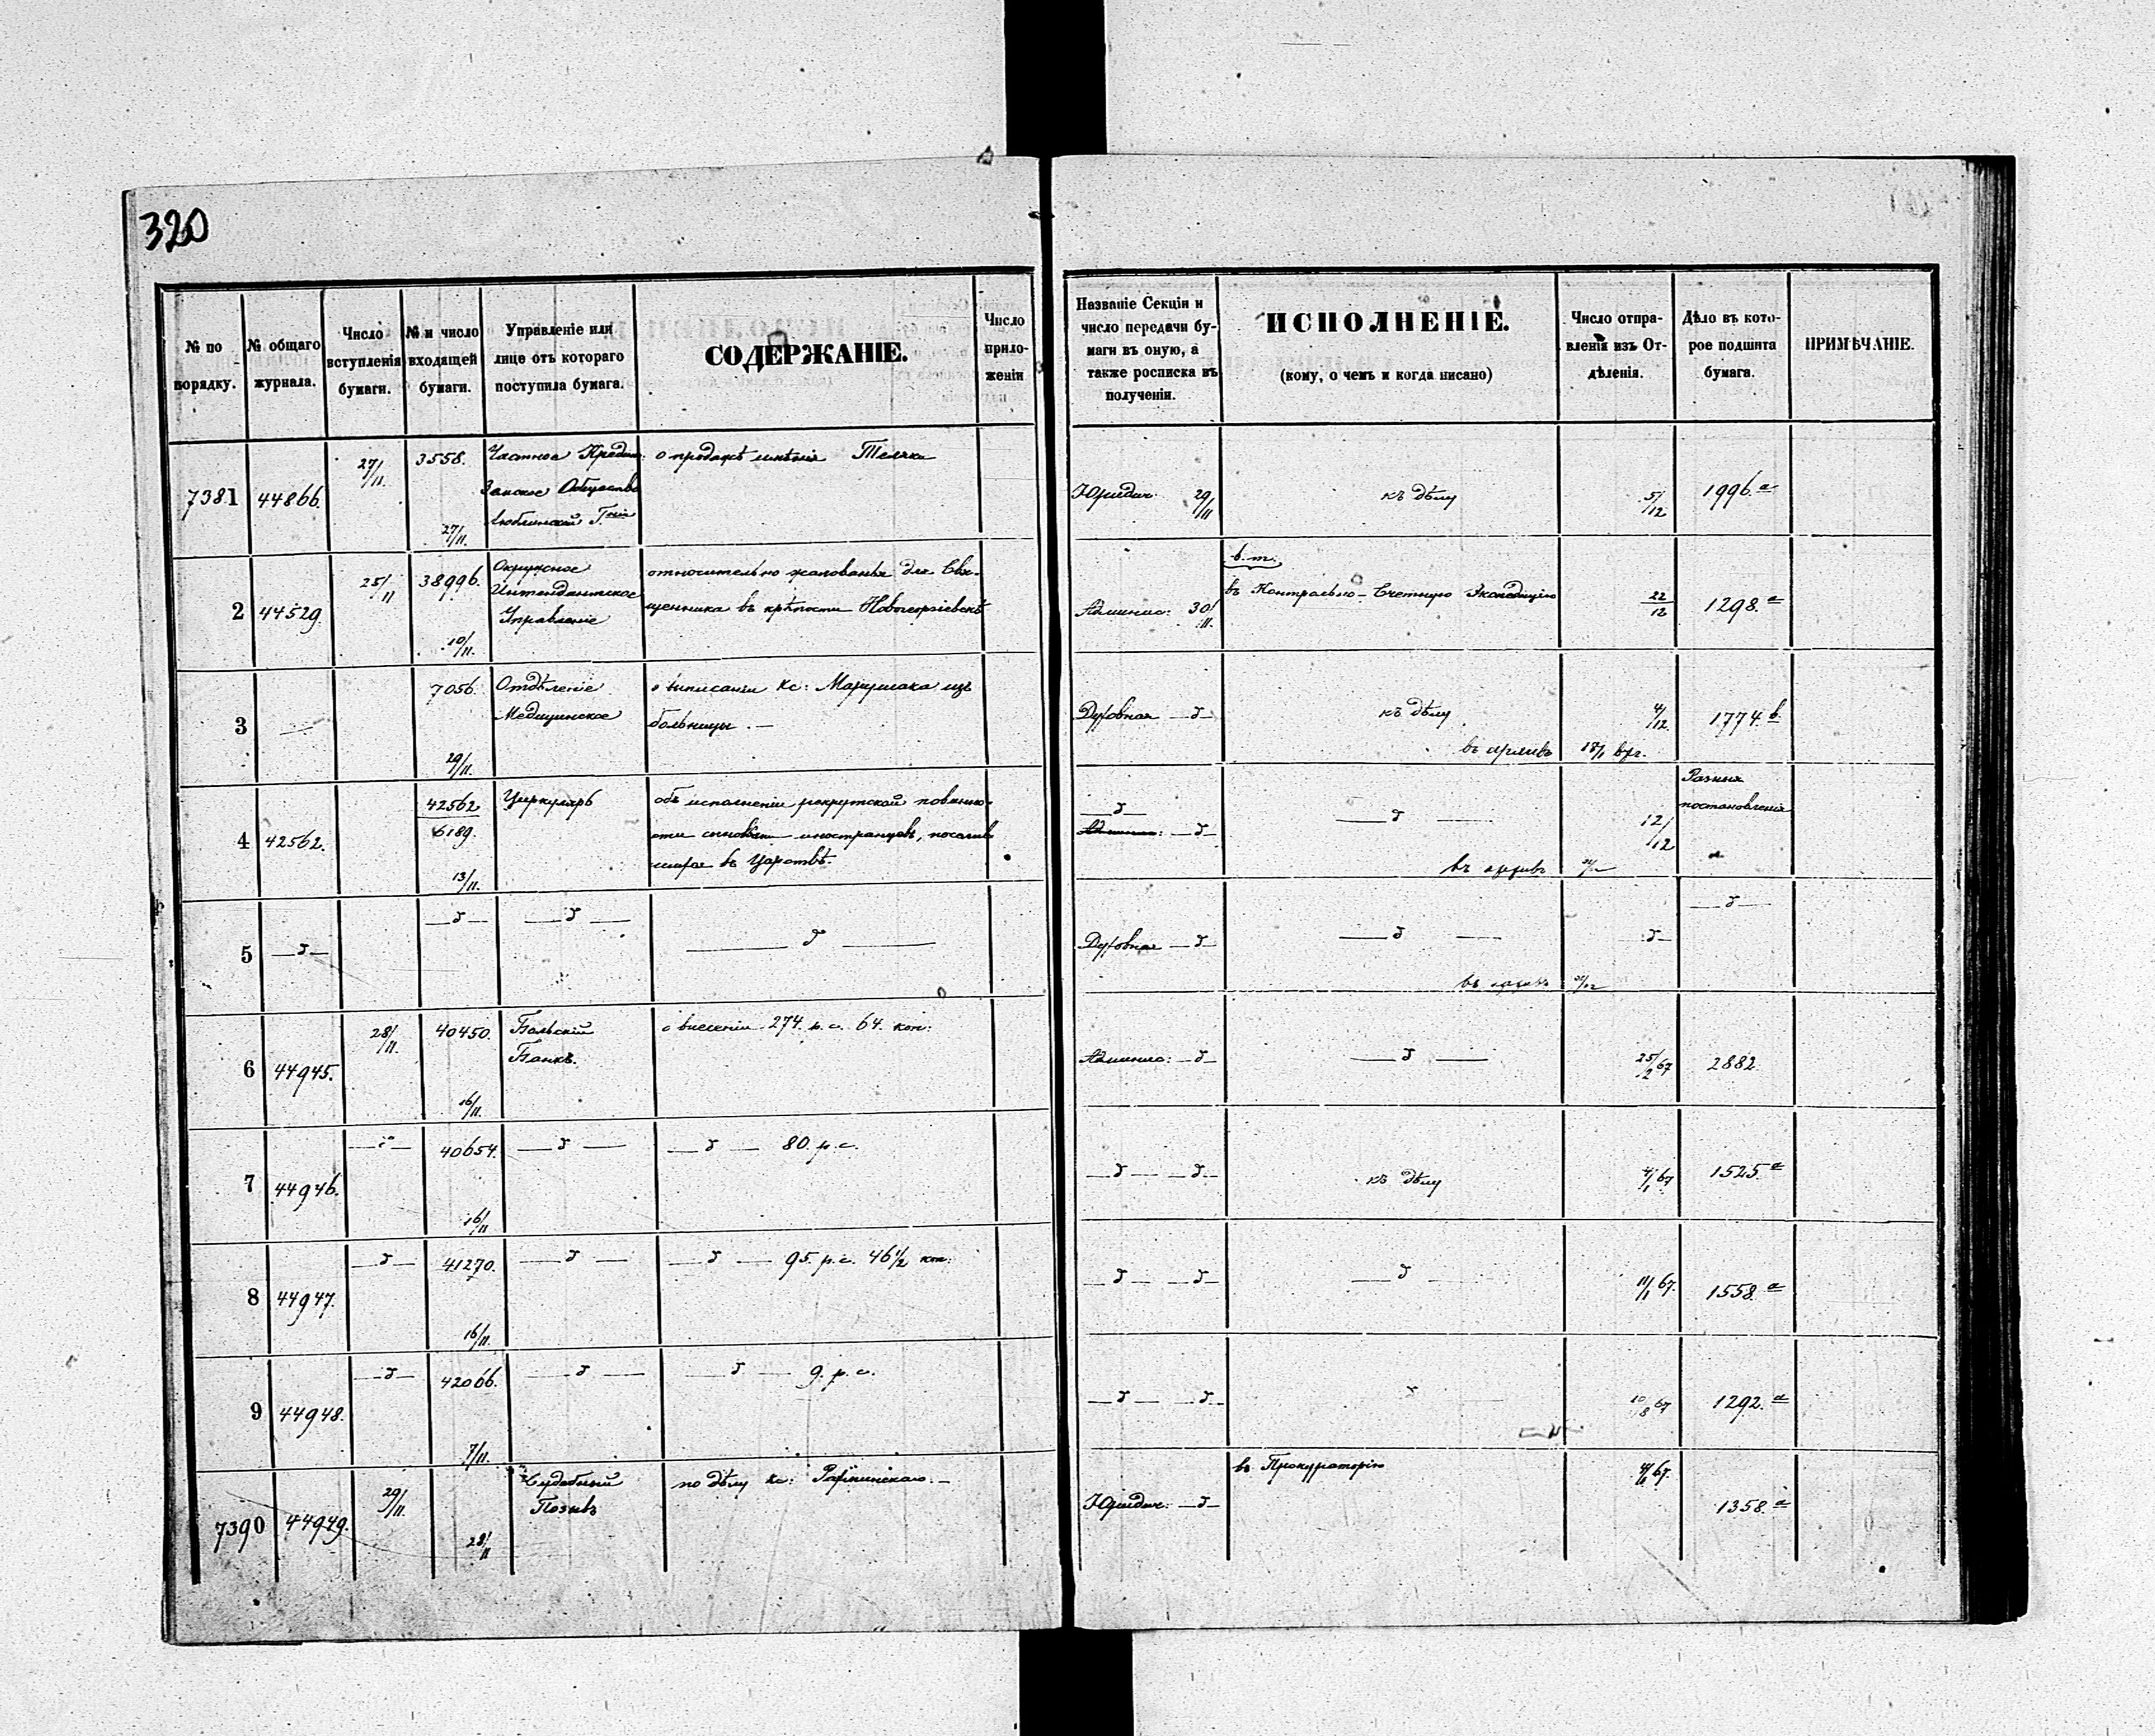 320
№ по порядку.
№ общаго журнала.
Число вступленія бумаги.
№ и число входящей бумаги.
Управленіе или лице отъ котораго поступила бумага.
СОДЕРЖАНІЕ.
Число прило- женіи
Названіе Секціи и число передачи бу- маги въ оную, а также росписка въ полученіи.
ИСПОЛНЕНІЕ.
(кому, о чемъ и когда писано)
Число отпра- вленія изъ От- дѣленія.
Дѣло въ кото- рое подшита бумага.
ПРИМѢЧАНІЕ.
7381 44866. 27/11. 3558. 27/11.
Частное
Общество
Люблинской Гніи
о продажѣ имѣнія
Юридич: 29/11 къ дѣлу 5/12 1996.а
2 44529. 25/11 38996. 10/11.
Окружное
Интендантское
Управленіе
относительно жалованья для Свя-
щенника въ крѣпости Новогеоргіевскѣ
Админис: 30/11.
в. т.
въ Контрольно-Счетную Экспедицію
22/12 1298.а
3 7056. 29/11.
Отдѣленіе
Медицинское
о выписаніи Кс: изъ
больницы. —
Духовная —д— къ дѣлу 4/12. 1774.b.
въ архивъ
4 42562. 42562/6189. 13/11.
Циркуляръ
объ исполненіи рекрутской повинно-
сти сыновьями иностранцевъ,
въ Царствѣ.
—д—
Админис: —д— —д— 12/12
Разныя
постановленія
въ архивъ
5 —д— —д— —д— —д—
Духовная —д— —д— —д— —д—
въ архивъ
6 44945. 28/11. 40450. 16/11.
Польскій
Банкъ.
о внесеніи 274. р. с. 64. коп:
Админис: —д— —д— 25/2 67 2882
7 44946. —д— 40654. 16/11 —д— —д— 80. р. с.
—д— —д— къ дѣлу 4/1 67 1525.а
8 44947. —д— 41270. 16/11. —д— —д— 95. р. с. 46½ коп:
—д— —д— —д— 11/1 67. 1558.а
9 44948. —д— 42066. 7/11. —д— —д— 9. р. с.
—д— —д— —д— 10/8 67 1292.а
7390 44949. 29/11. 28/11
Судебный
Позывъ
по дѣлу Кс:
Юридич: —д— въ Прокураторію 67. 1358.а